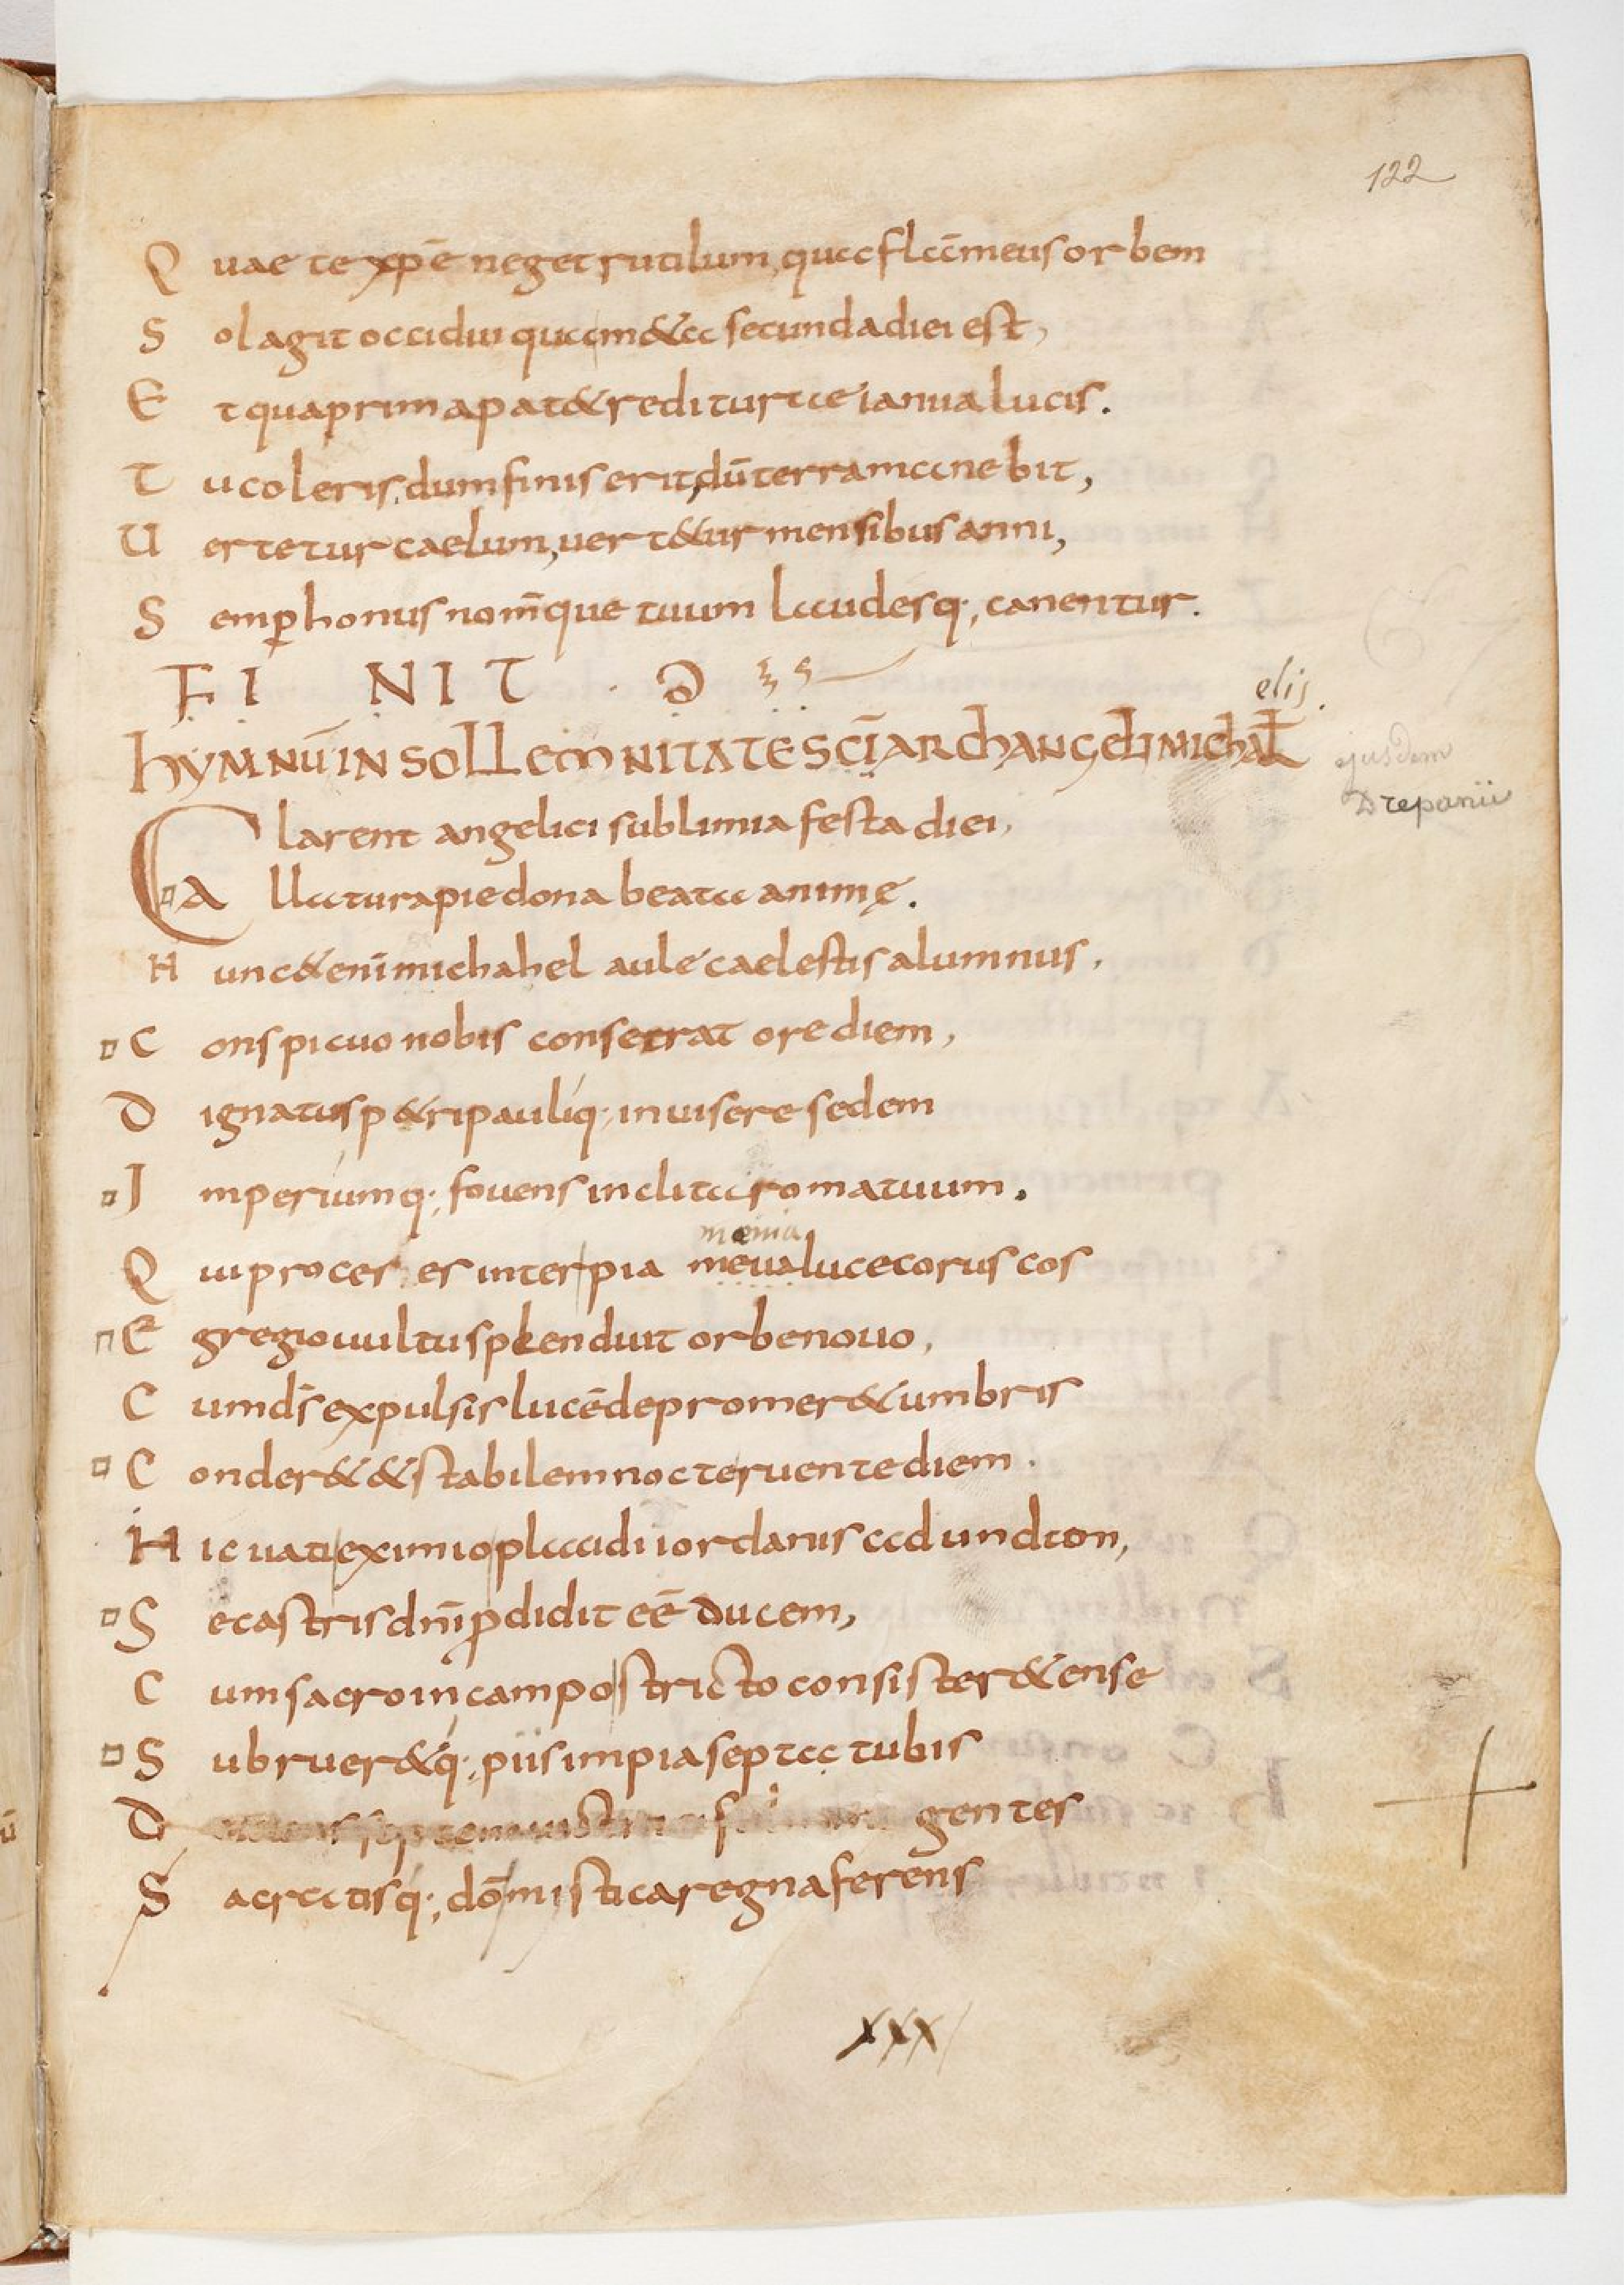 122
Quae te xp̄e neget rutilum, qua flām̄eus orbem
Sol agit occidui quam & a secunda diei est,
Et qua prima pat& redit urtae ianua lucis.
Tu coleris, dum finis erit, dū terra manebit,
Uertetur caelum, uert&ur mensibus anni,
Semp̲ honus nom̄que tuum laudesq;, canentur.
FINIT
elis.
HYMNŪ IN SOLLEMNITATE SC̄I ARCHANGELI MICHAL
ejusdem
Drepanii
Clarent angelici sublimia festa diei,
Allatura pie dona beata animę.
Hunc &enī michahel aule caelestis alumnus,
Conspicuo nobis consecrat ore diem,
Dignatus p&ri pauliq; inuisere sedem
Imperiumq; fouens inclita roma tuum.
mœnia
Qui proceres inter pia meua luce coruscos
Egregio uultu splenduit orbe nouo,
Cum d̄s expulsis lucē depromer& umbris
Conder& & stabilem nocte ruente diem.
Hic uati eximio placidi iordanis ad undton,
Se castris dn̄i p̲didit eē ducem,
Cum sacro in campo stricto consister& ense
Subruer&q; piis impia septa tubis
D gentes
Sacratisq; dō mistica regna ferens
xxx